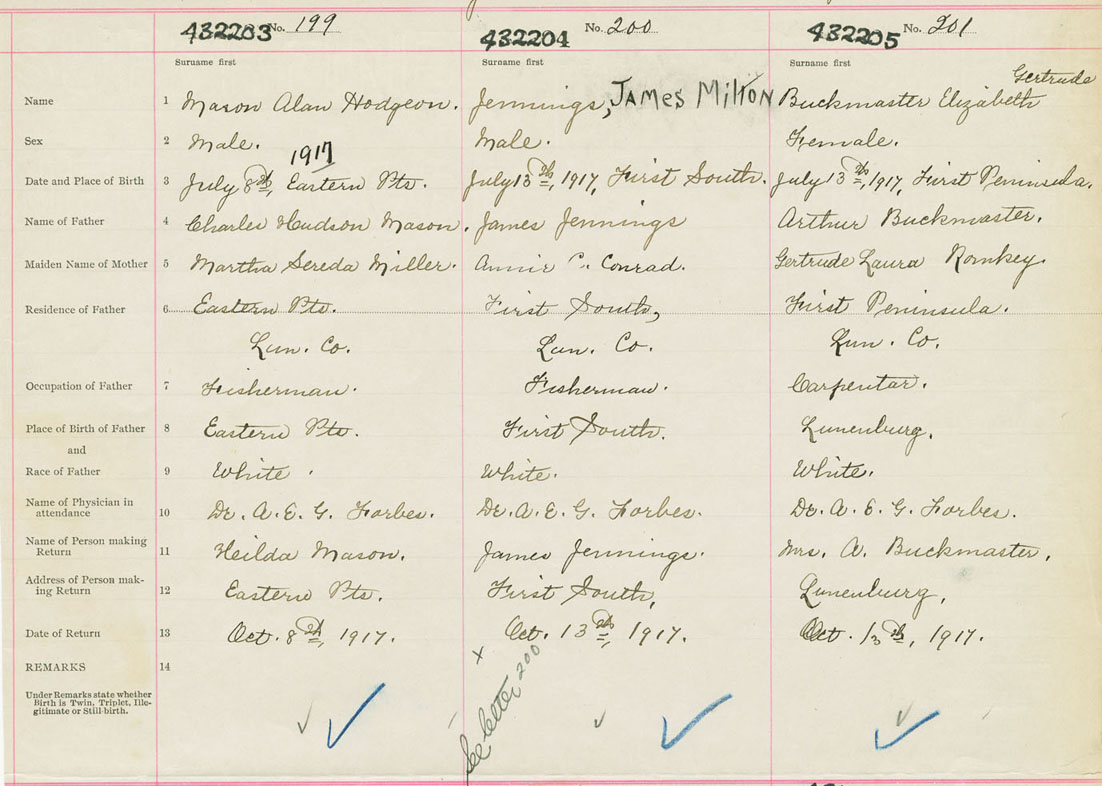 432203 No. 199 432204 No. 200 432205 No. 201
Surname first Surname first Surname first
Gertrude
Name 1 Mason Alan Hodgeon. Jennings, JAMES MILTON Buckmaster Elizabeth
Sex 2 Male. Male. Female.
1917
Date and Place of Birth 3 July 8th, Eastern Pts. July 13th, 1917, First South. July 13th, 1917, First Peninsula.
Name of Father 4 Charles Hudson Mason. James Jennings Arthur Buckmaster.
Maiden Name of Mother 5 Martha Sereda Miller. Annie C. Conrad. Gertrude Laura Romkey.
Residence of Father 6 Eastern Pts. First South, First Peninsula.
Lun. Co. Lun. Co. Lun. Co.
Occupation of Father 7 Fisherman. Fisherman. Carpentar.
Place of Birth of Father 8 Eastern Pts. First South. Lunenburg.
and
Race of Father 9 White. White. White.
Name of Physician in
attendance 10 Dr. A. E. G. Forbes. Dr. A. E. G. Forbes. Dr. A. E. G. Forbes.
Name of Person making
Return 11 Heilda Mason. James Jennings. Mrs. A. Buckmaster.
Address of Person mak-
ing Return 12 Eastern Pts. First South, Lunenburg.
Date of Return 13 Oct. 8th, 1917. Oct. 13th, 1917. Oct. 13th, 1917.
REMARKS 14
Under Remarks state whether
Birth is Twin, Triplet, Ille-
gitimate or Still-birth.
x See letter 200